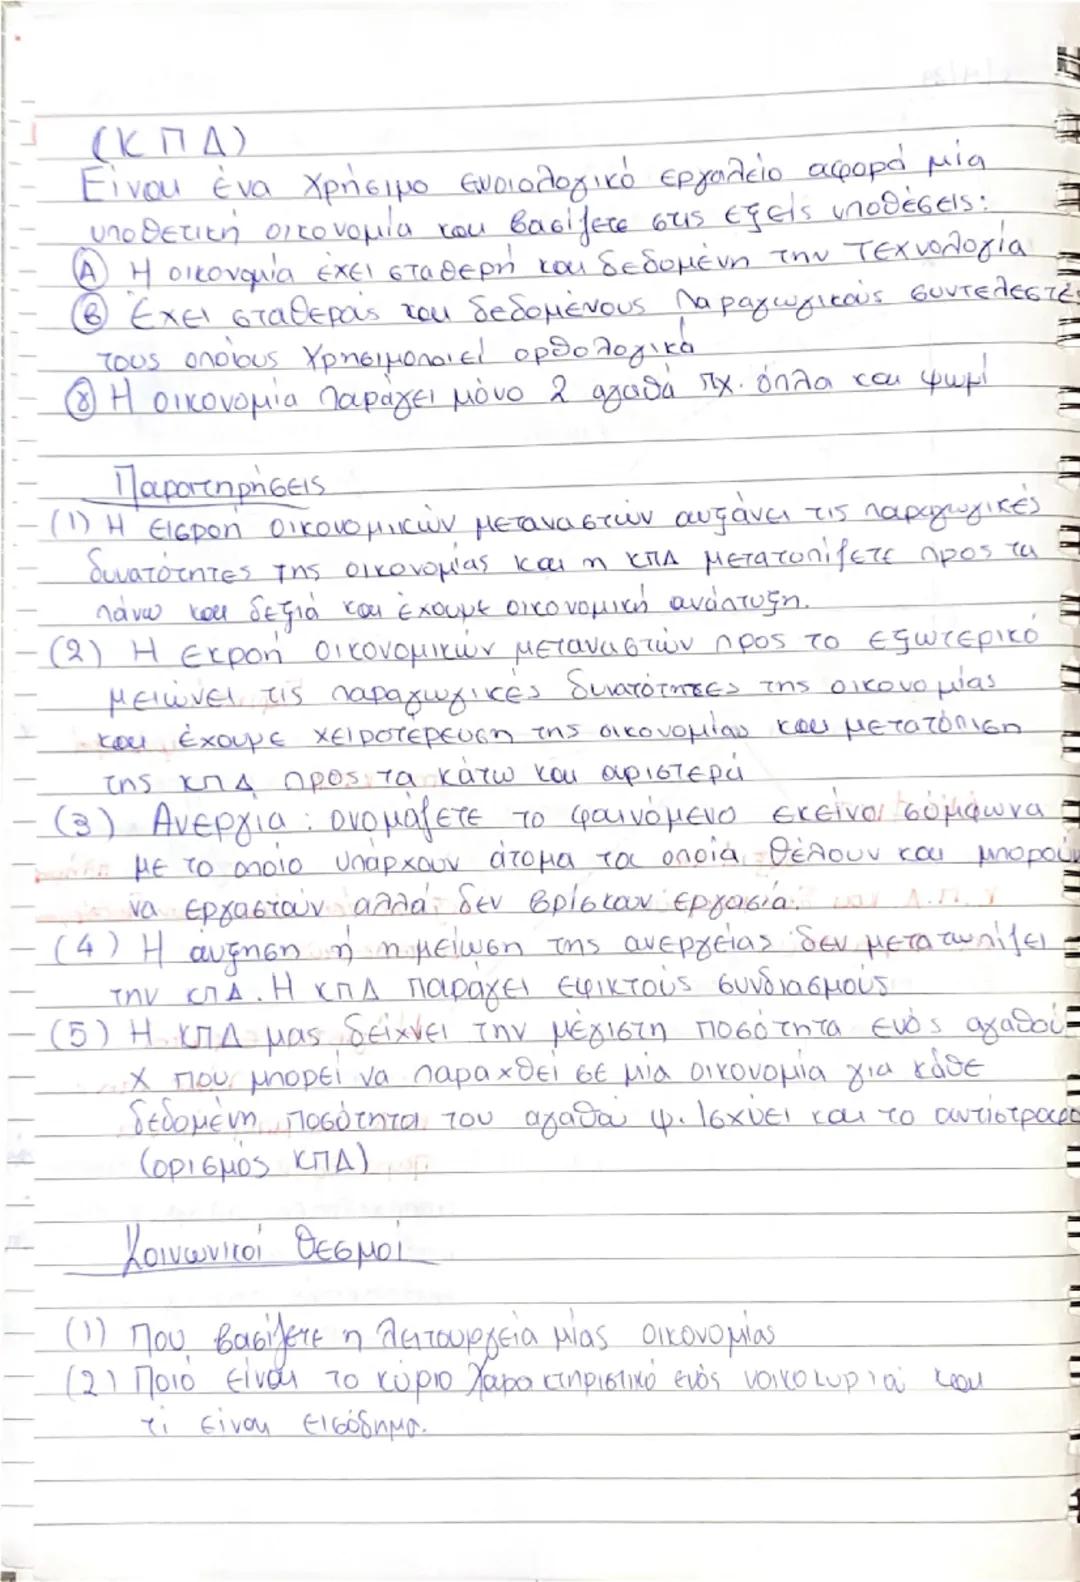 (Κ Π Δ)
Είναι ένα χρήσιμο εννοιολογικό εργαλείο αφορά μία
υποθετική οικονομία και βασίζετε στις εξείς υποθέσεις:
Α Η οικονομία έχει σταθερή και δεδομένη την Τεχνολογία
Β Έχει σταθερούς και δεδομένους παραγωγικούς συντελεστές
τους οποίους χρησιμοποιεί ορθολογικά
γ Η οικονομία παράγει μόνο 2 αγαθά πχ. όπλα και ψωμί
Παρατηρήσεις
(1) Η εισροή οικονομικών μεταναστών αυξάνει τις παραγωγικές
δυνατότητες της οικονομίας και η ΚΠΔ μετατοπίζετε προς τα
πάνω και δεξιά και έχουμε οικονομική ανάπτυξη.
(2) Η εκροή οικονομικών μεταναστών προς το εξωτερικό
μειώνει τις παραγωγικές δυνατότητες της οικονομίας
και έχουμε χειροτέρευση της οικονομίας και μετατόπιση
της ΚΠΔ προς τα κάτω και αριστερά
(3) Ανεργία: ονομάζετε το φαινόμενο εκείνο σύμφωνα
με το οποίο υπάρχουν άτομα τα οποία θέλουν και μπορούν
να εργαστούν αλλά δεν βρίσκουν εργασία.
(4) Η αύξηση ή η μείωση της ανεργείας δεν μετατωπίζει
την ΚΠΔ. Η ΚΠΔ παράγει εφικτούς συνδιασμούς
(5) Η ΚΠΔ μας δείχνει την μέγιστη ποσότητα ενός αγαθού
Χ που μπορεί να παραχθεί σε μία οικονομία για κάθε
δεδομένη ποσότητα του αγαθού ψ. Ισχύει και το αντίστροφο
(ορισμός ΚΠΔ)
Κοινωνικοί Θεσμοί
(1) Που βασίζετε η λειτουργεία μίας οικονομίας
(2) Ποιό είναι το κύριο χαρακτηριστικό ενός νοικοκυριού και
τι είναι εισόδημα.